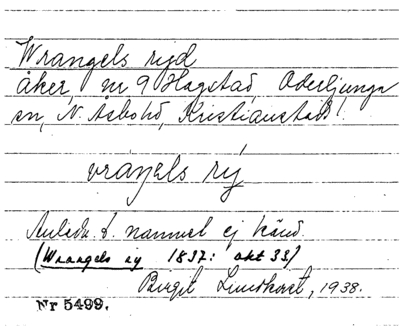 Wrangels ryd
åker, nr 9 Hagstad, Oderljunga
sn, N. Åsbo hd, Kristianstads l.
vraŋels rȳ
Anledn. t. namnet ej känd.
(Wrangels ry 1837: akt 33)
Birgit Lindkvist, 1938.
Nr 5499.